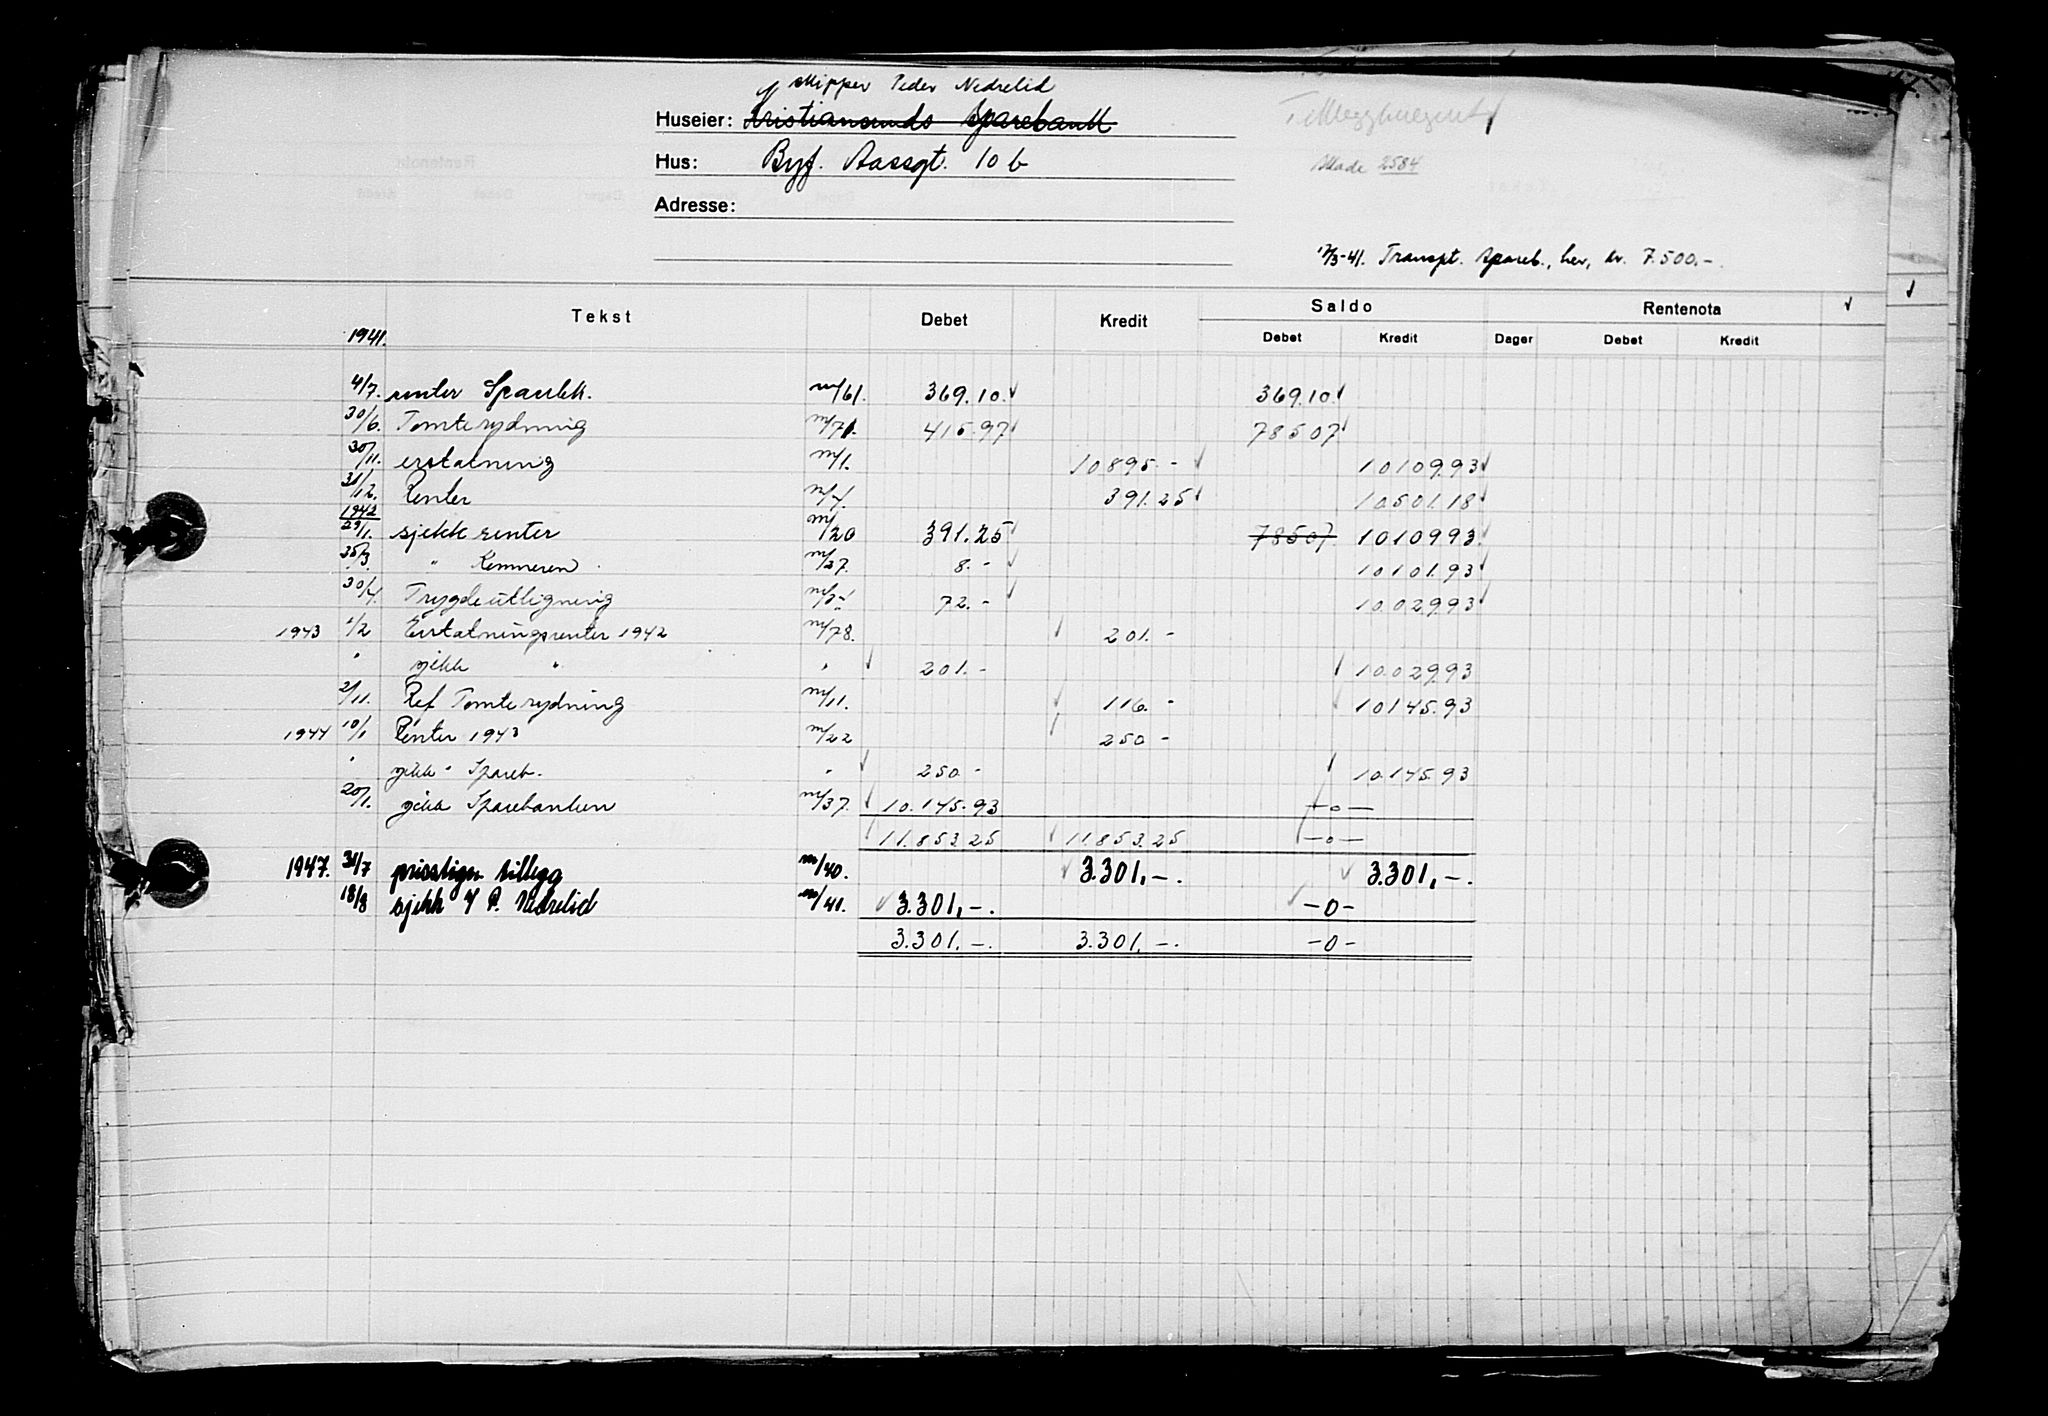 skipper Peder Nedrelid
Huseier: Kristiansunds Sparebank
Hus: Byf. Aassgt. 10 b
Skade 2584
Adresse:
17/3-41. Transpt. Spareb., her, kr. 7.500.-
Tekst Debet Kredit Saldo Rentenota
Debet Kredit Dager Debet Kredit
1941.
4/7. renter Sparebk. m/61. 369.10 369.10
30/6. Tomterydning m/71. 415.97 785 07
30/11. erstatning m/1. 10 895.- 10109.93
31/12. Renter m/4. 391.25 10.501.18
1942
29/1. sjekk renter m/20 391.25 785 07 10109 93
25/3. " Kemneren m/27. 8.- 10101.93
30/4. Trygdeutligning 72.- 10.029.93
1943 1/2 Erstatningsrenter 1942 m/78. 201.-
" sjekk " " 201.- 10.029.93
2/11. Ref Tomterydning m/11. 116.- 10145.93
1944 10/1 Renter 1943 m/22 250-
" sjekk " Spareb. " 250- 10.145.93
20/1. sjekk Sparebanken m/37. 10.145.93 -0-
11.853.25 11.853.25 -0-
1947. 31/7 prisstign tillegg m/40. 3.301,-. 3.301,-.
18/8 sjekk P. Nedrelid m/41. 3.301,-. -0-
3.301.-. 3.301.-. -0-